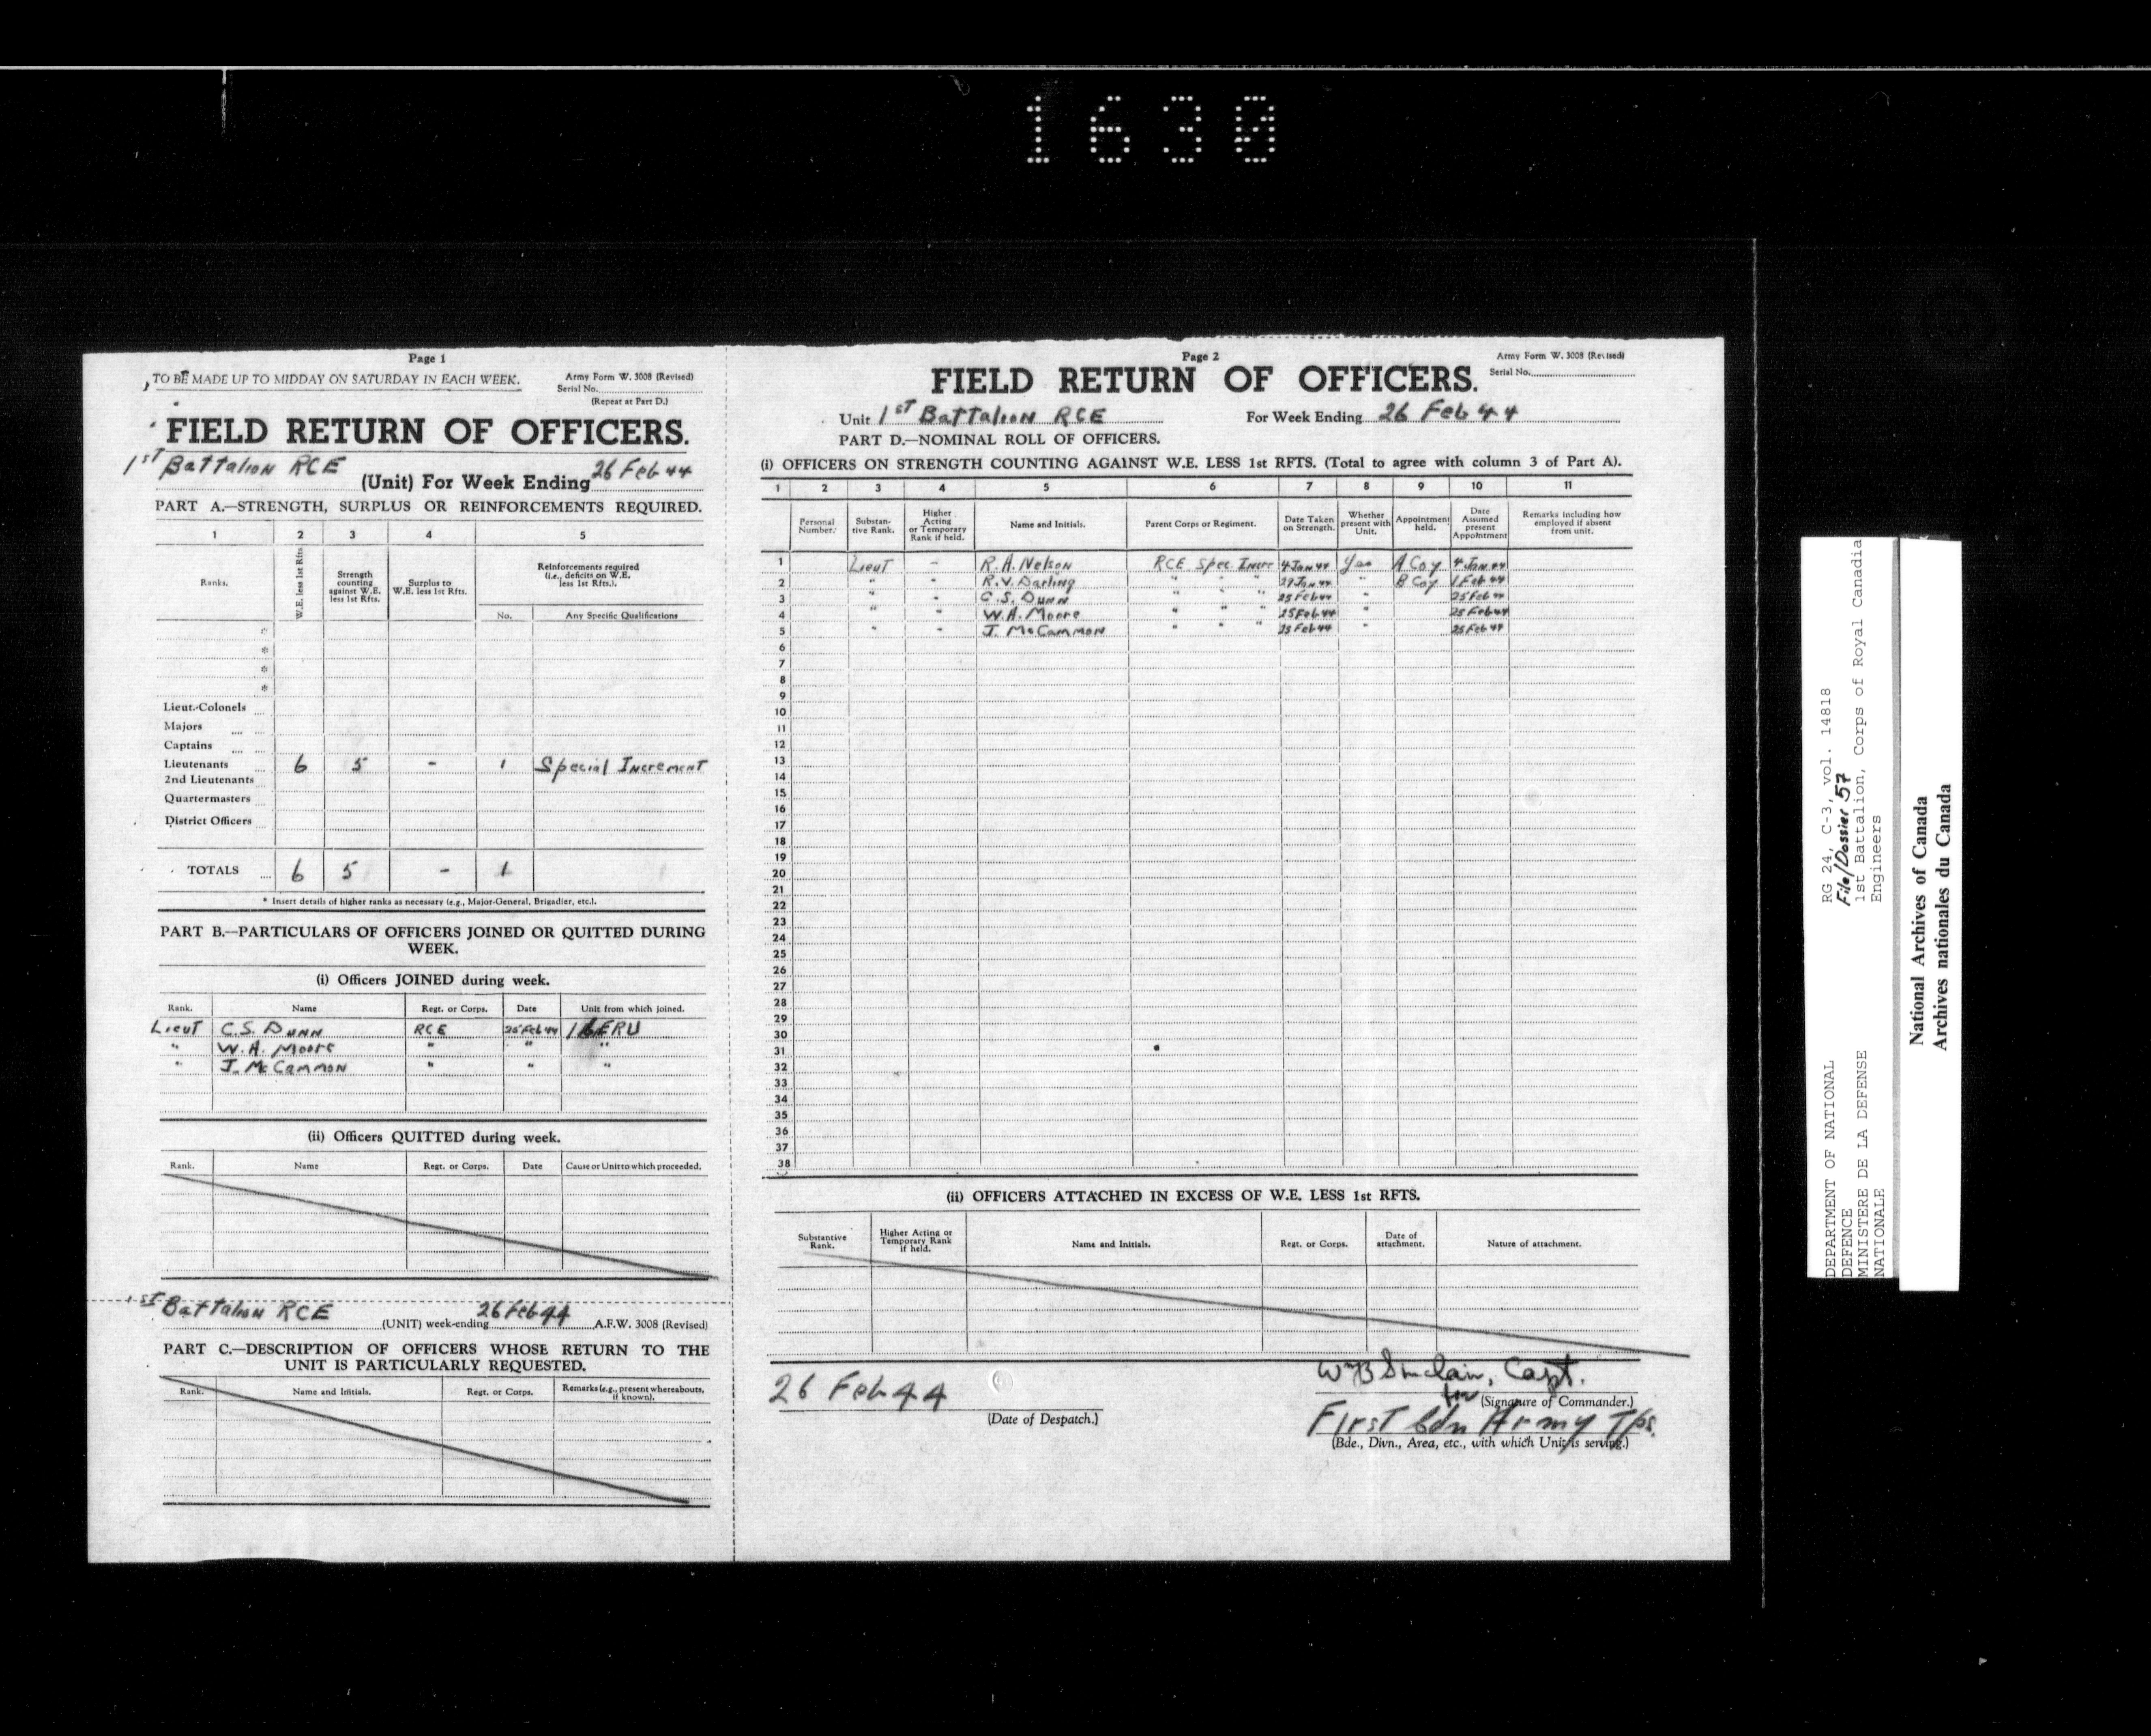 1630
Page 1
TO BE MADE UP TO MIDDAY ON SATURDAY IN EACH WEEK.
Army Form W. 3008 (Revised)
Serial No.
(Repeat at Part D.)
FIELD RETURN OF OFFICERS.
1ST Battalion RCE (Unit) For Week Ending 26 Feb 44
PART A.—STRENGTH, SURPLUS OR REINFORCEMENTS REQUIRED.
1 2 3 4 5
Ranks. W.E. less 1st Rfts. Strength counting against W.E. less 1st Rfts. Surplus to W.E. less 1st Rfts. Reinforcements required (i.e., deficits on W.E. less 1st Rfts.).
No. Any Specific Qualifications
*
*
*
*
Lieut.-Colonels
Majors
Captains
Lieutenants 6 5 - 1 Special Increment
2nd Lieutenants
Quartermasters
District Officers
TOTALS 6 5 - 1
* Insert details of higher ranks as necessary (e.g., Major-General, Brigadier, etc.).
PART B.—PARTICULARS OF OFFICERS JOINED OR QUITTED DURING
WEEK.
(i) Officers JOINED during week.
Rank. Name Regt. or Corps. Date Unit from which joined.
Lieut C.S. Dunn RCE 25 Feb 44 ERU
" W.A. Moore " " "
" J. McCammon " " "
(ii) Officers QUITTED during week.
Rank. Name Regt. or Corps. Date Cause or Unit to which proceeded.
1ST Battalion RCE (UNIT) week-ending 26 Feb 44 A.F.W. 3008 (Revised)
PART C.—DESCRIPTION OF OFFICERS WHOSE RETURN TO THE
UNIT IS PARTICULARLY REQUESTED.
Rank. Name and Initials. Regt. or Corps. Remarks (e.g., present whereabouts, if known).
Page 2
Army Form W. 3008 (Revised)
Serial No.
FIELD RETURN OF OFFICERS.
Unit 1ST Battalion RCE For Week Ending 26 Feb 44
PART D.—NOMINAL ROLL OF OFFICERS.
(i) OFFICERS ON STRENGTH COUNTING AGAINST W.E. LESS 1st RFTS. (Total to agree with column 3 of Part A).
1 2 3 4 5 6 7 8 9 10 11
Personal Number. Substantive Rank. Higher Acting or Temporary Rank if held. Name and Initials. Parent Corps or Regiment. Date Taken on Strength. Whether present with Unit. Appointment held. Date Assumed present Appointment Remarks including how employed if absent from unit.
1 Lieut - R.A. Nelson RCE Spec Incre 4 Jan 44 Yes A Coy 4 Jan 44
2 " " R.V. Darling " " " 29 Jan 44 " B Coy 1 Feb 44
3 " " C.S. Dunn " " " 25 Feb 44 " 25 Feb 44
4 " " W.A. Moore " " " 25 Feb 44 " 25 Feb 44
5 " " J. McCammon " " " 25 Feb 44 " 25 Feb 44
6
7
8
9
10
11
12
13
14
15
16
17
18
19
20
21
22
23
24
25
26
27
28
29
30
31
32
33
34
35
36
37
38
(ii) OFFICERS ATTACHED IN EXCESS OF W.E. LESS 1st RFTS.
Substantive Rank. Higher Acting or Temporary Rank if held. Name and Initials. Regt. or Corps. Date of attachment. Nature of attachment.
26 Feb 44
(Date of Despatch.)
WB Sinclair, Capt.
for (Signature of Commander.)
First Cdn Army Tps.
(Bde., Divn., Area, etc., with which Unit is serving.)
DEPARTMENT OF NATIONAL
DEFENCE
MINISTERE DE LA DEFENSE
NATIONALE
RG 24, C-3, vol. 14818
File/Dossier 57
1st Battalion, Corps of Royal Canadia
Engineers
National Archives of Canada
Archives nationales du Canada